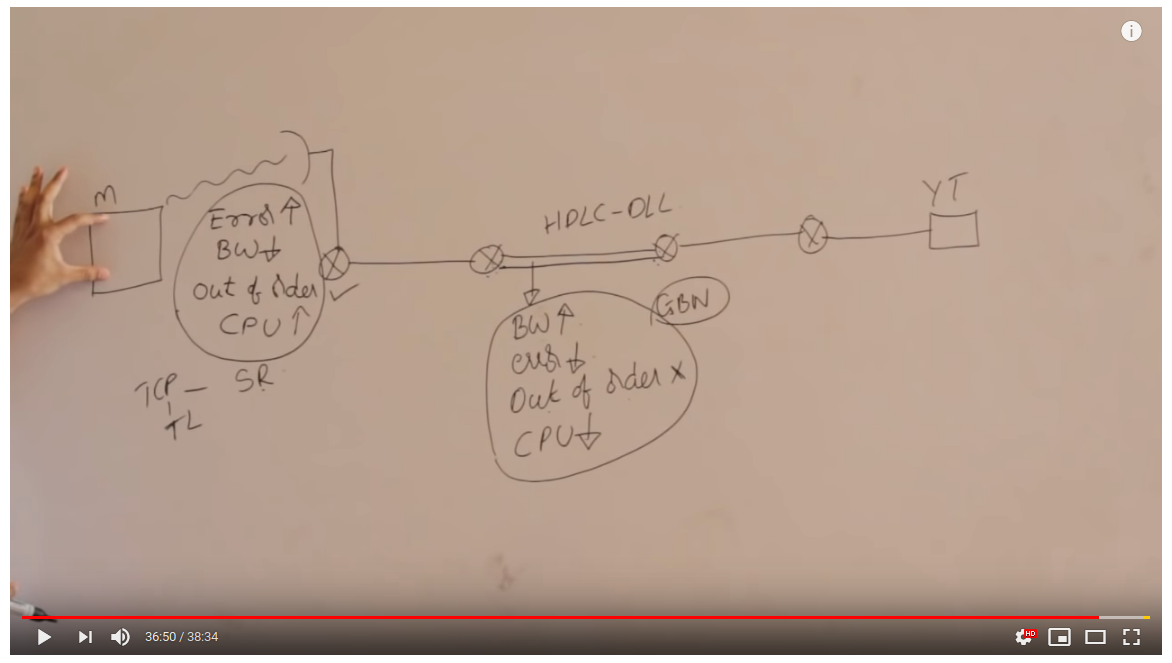 M
Error ↑
BW ↓
Out of order
CPU ↑
TCP - SR
TL
HDLC-DLL
YT
GBN
BW ↑
error ↓
Out of order x
CPU ↓
36:50 / 38:34
HD